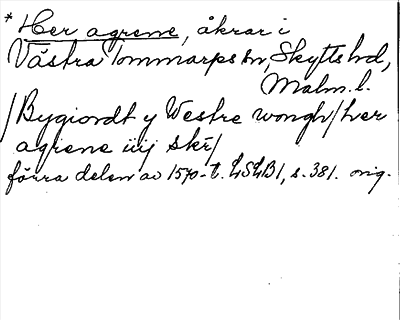 * Her agrene, åkrar i
Västra Tommarps sn, Skytts hd,
Malm. l.
/Bygiordt y Westre wongh/her
agrene iiij skr/
förra delen av 1570-t. LSLB1, s. 381. orig.